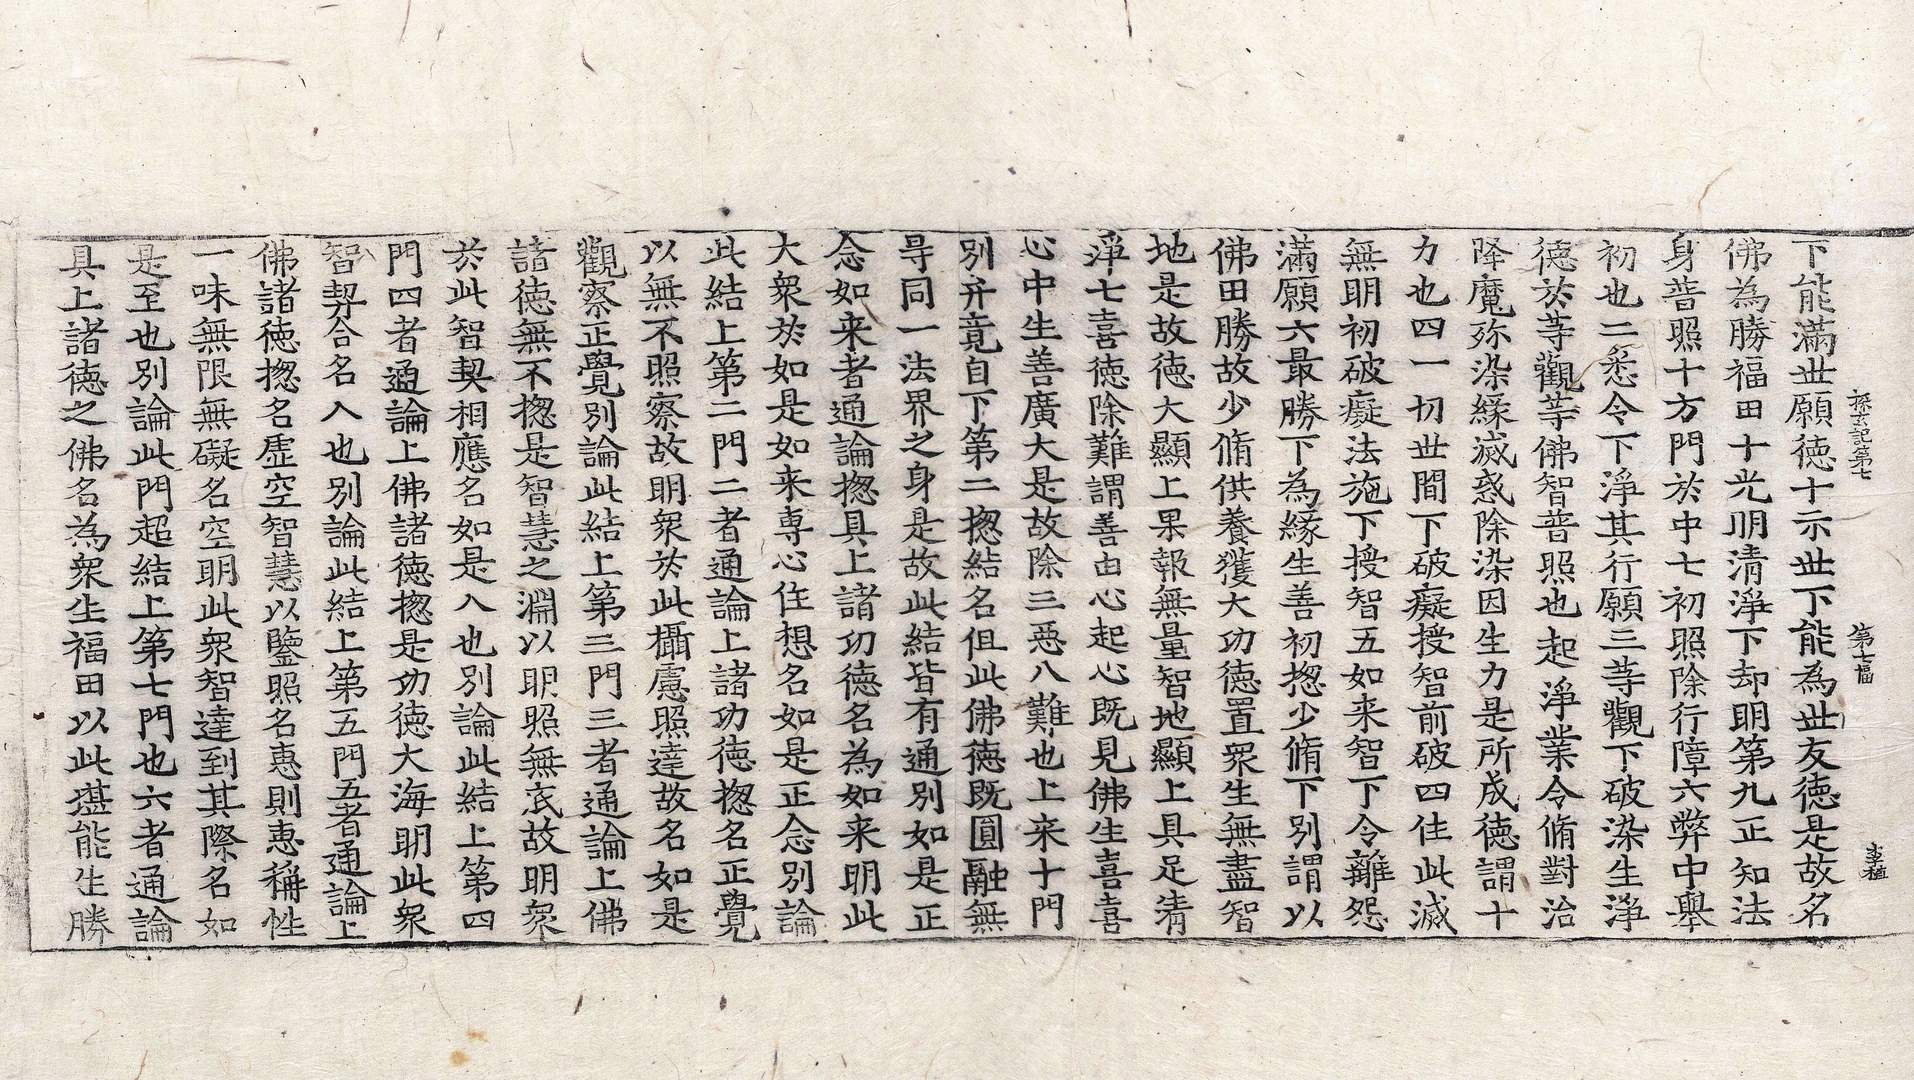 探玄記第七 第七幅 李禃
下能滿世願德十示世下能為世友德是故名
佛為勝福田十光明清淨下却明第九正知法
身普照十方門於中七初照除行障六弊中舉
初也二悉令下淨其行願三等觀下破染生淨
德於等觀等佛智普照也起淨業令脩對治
降魔弥染緣滅惑除染因生力是所成德謂十
力也四一切世間下破癡授智前破四住此滅
無明初破癡法施下授智五如来智下令離怨
滿願六最勝下為緣生善初揔少脩下別謂以
佛田勝故少脩供養獲大功德置衆生無盡智
地是故德大顯上果報無量智地顯上具足清
淨七喜德除難謂善由心起心既見佛生喜喜
心中生善廣大是故除三惡八難也上来十門
別弁竟自下第二揔結名但此佛德既圓融無
㝵同一法界之身是故此結皆有通別如是正
念如来者通論揔具上諸功德名為如来明此
大衆於如是如来專心住想名如是正念別論
此結上第二門二者通論上諸功德揔名正覺
以無不照察故明衆於此攝慮照達故名如是
觀察正覺別論此結上第三門三者通論上佛
諸德無不揔是智慧之淵以明照無底故明衆
於此智契相應名如是入也別論此結上第四
門四者通論上佛諸德揔是功德大海明此衆
智契合名入也別論此結上第五門五者通論上
佛諸德揔名虛空智慧以鑒照名惠則惠稱性
一味無限無礙名空明此衆智達到其際名如
是至也別論此門超結上第七門也六者通論
具上諸德之佛名為衆生福田以此堪能生勝